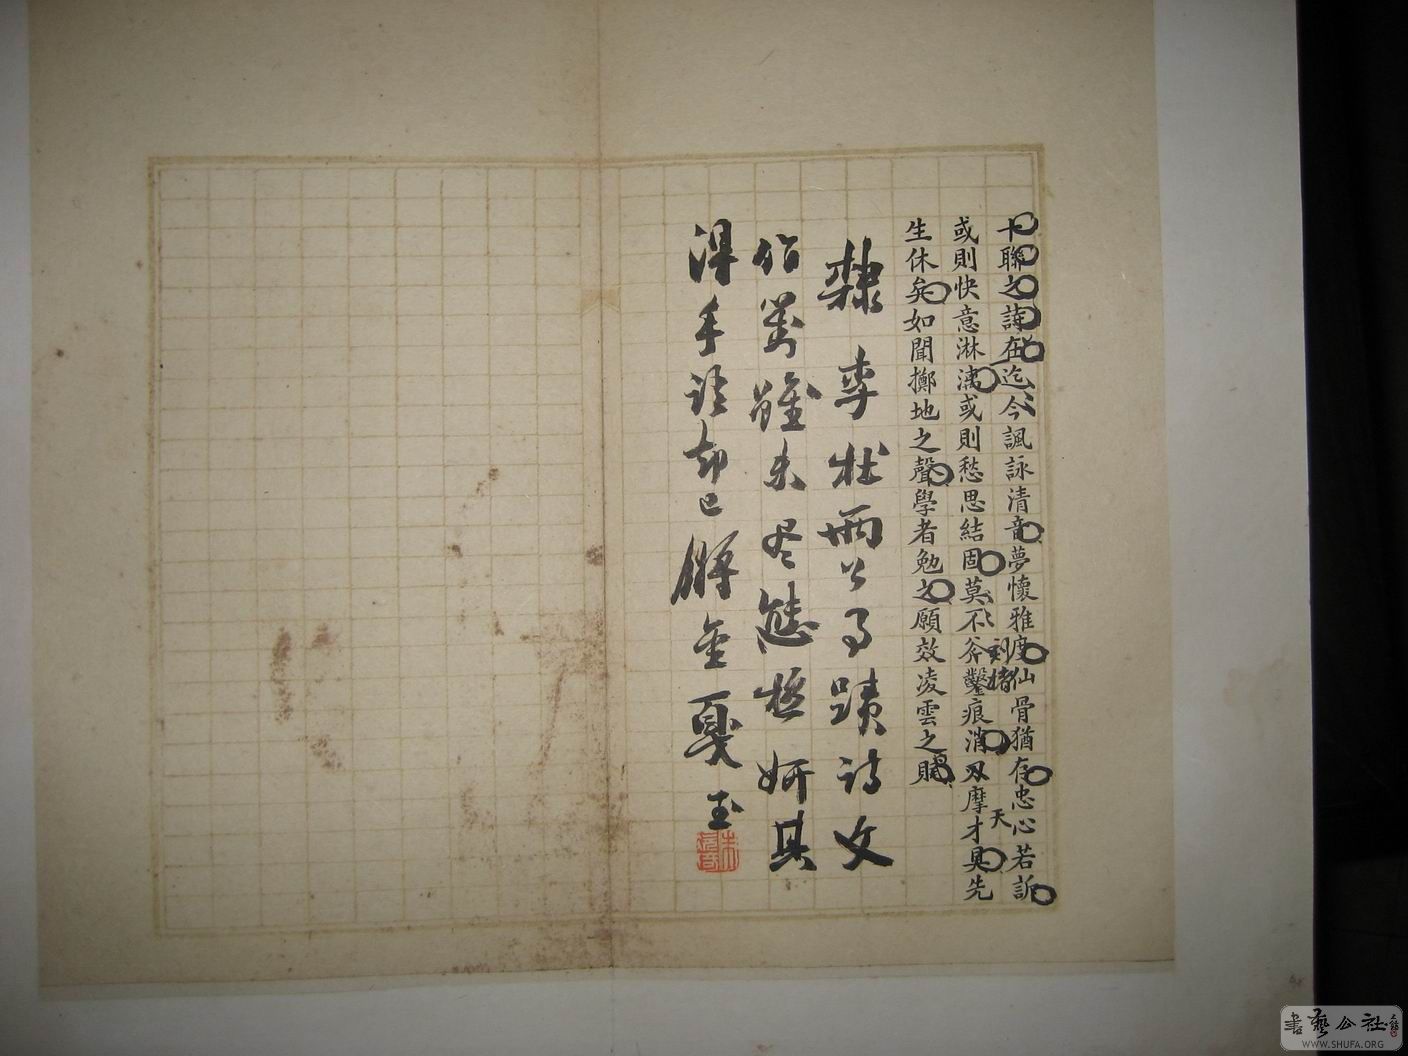 十聯之詩在迄今諷詠清音夢懷雅度仙骨猶存忠心若訴
或則快意淋漓或則愁思結固莫不斧鑿痕消刃摩才具先
刻楮
天
生休矣如聞擲地之聲學者勉之願效凌雲之賦
隸事狀兩公事蹟詩文
俗筆雖未尽態極妍其
得手語却已鏘金戛玉
書藝公社
WWW.SHUFA.ORG